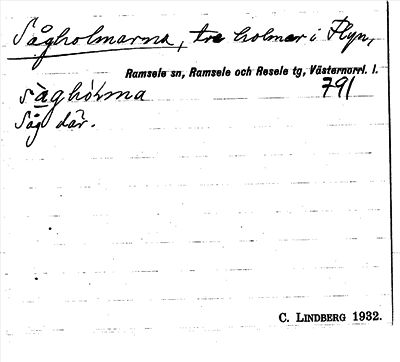 Sågholmarna, tre holmar i Flyn,
Ramsele sn, Ramsele och Resele tg, Västernorrl. l.
791
sàghòlma
Såg där.
C. LINDBERG 1932.